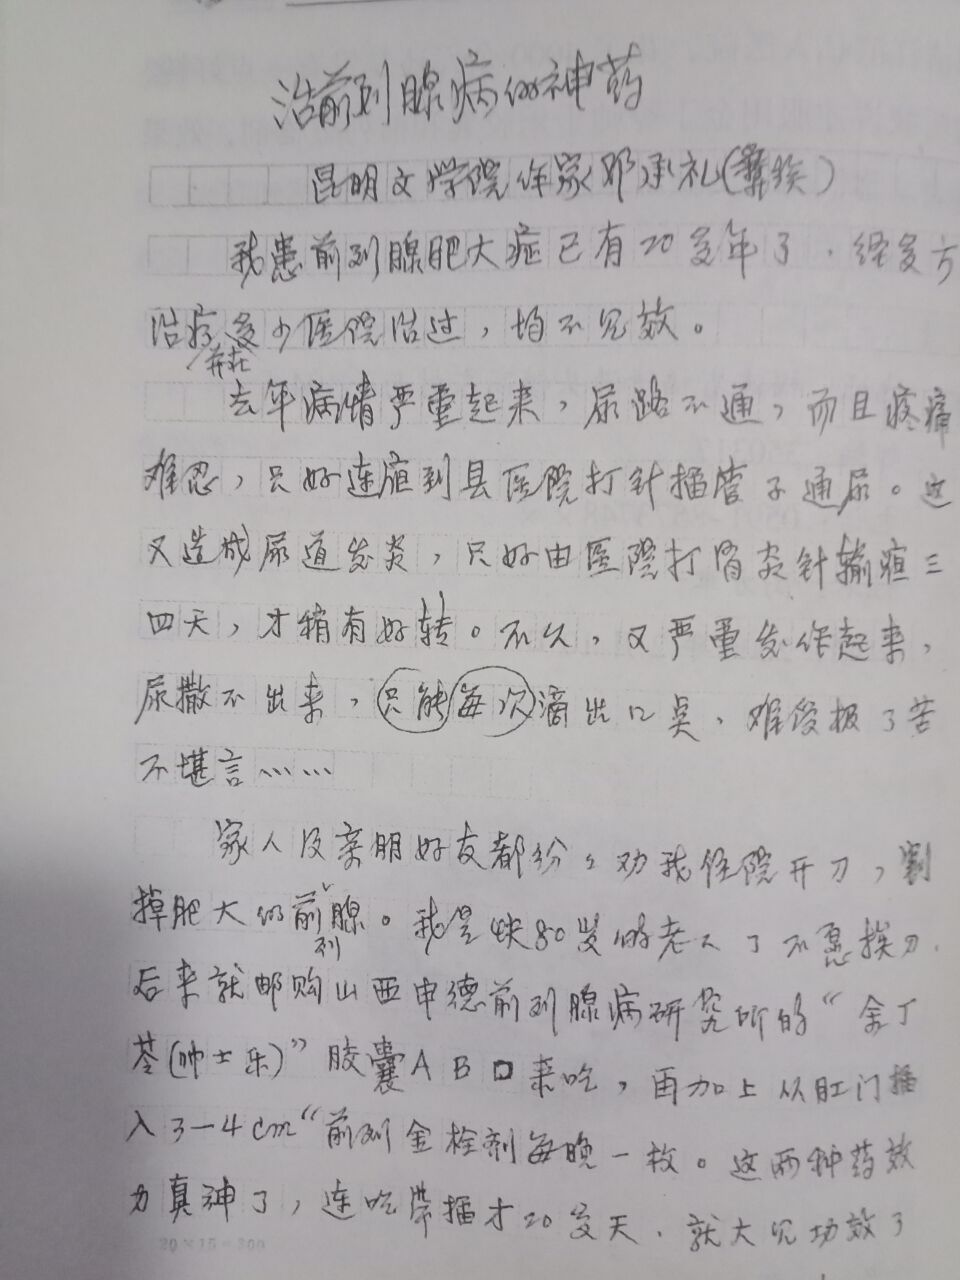 治前列腺病的神药
昆明文学院作家邓承礼(彝族)
我患前列腺肥大症已有20多年了．经多方
治疗多少医院治过，均不见效。
去年病情严重起来，尿路不通，而且疼痛
难忍，只好连 到县医院打针插管子通尿。这
又造成尿道发炎，只好由医院打消炎针输 三
四天，才稍有好转。不久，又严重发作起来，
尿撒不出来，只能每次滴出几点，难 极了苦
不堪言……
家人及亲朋好友都纷々劝我住院开刀，割
掉肥大的前列腺。我是快80岁的老人了不愿挨刀．
后来就邮购山西申德前列腺病研究所的“金丁
苓(帅士乐)”胶囊A B 来吃，再加上从肛门插
入3—4cm“前列金栓剂每晚一枚。这两种药效
力真神了，连吃带插才20多天．就大见功效了
20×15=300